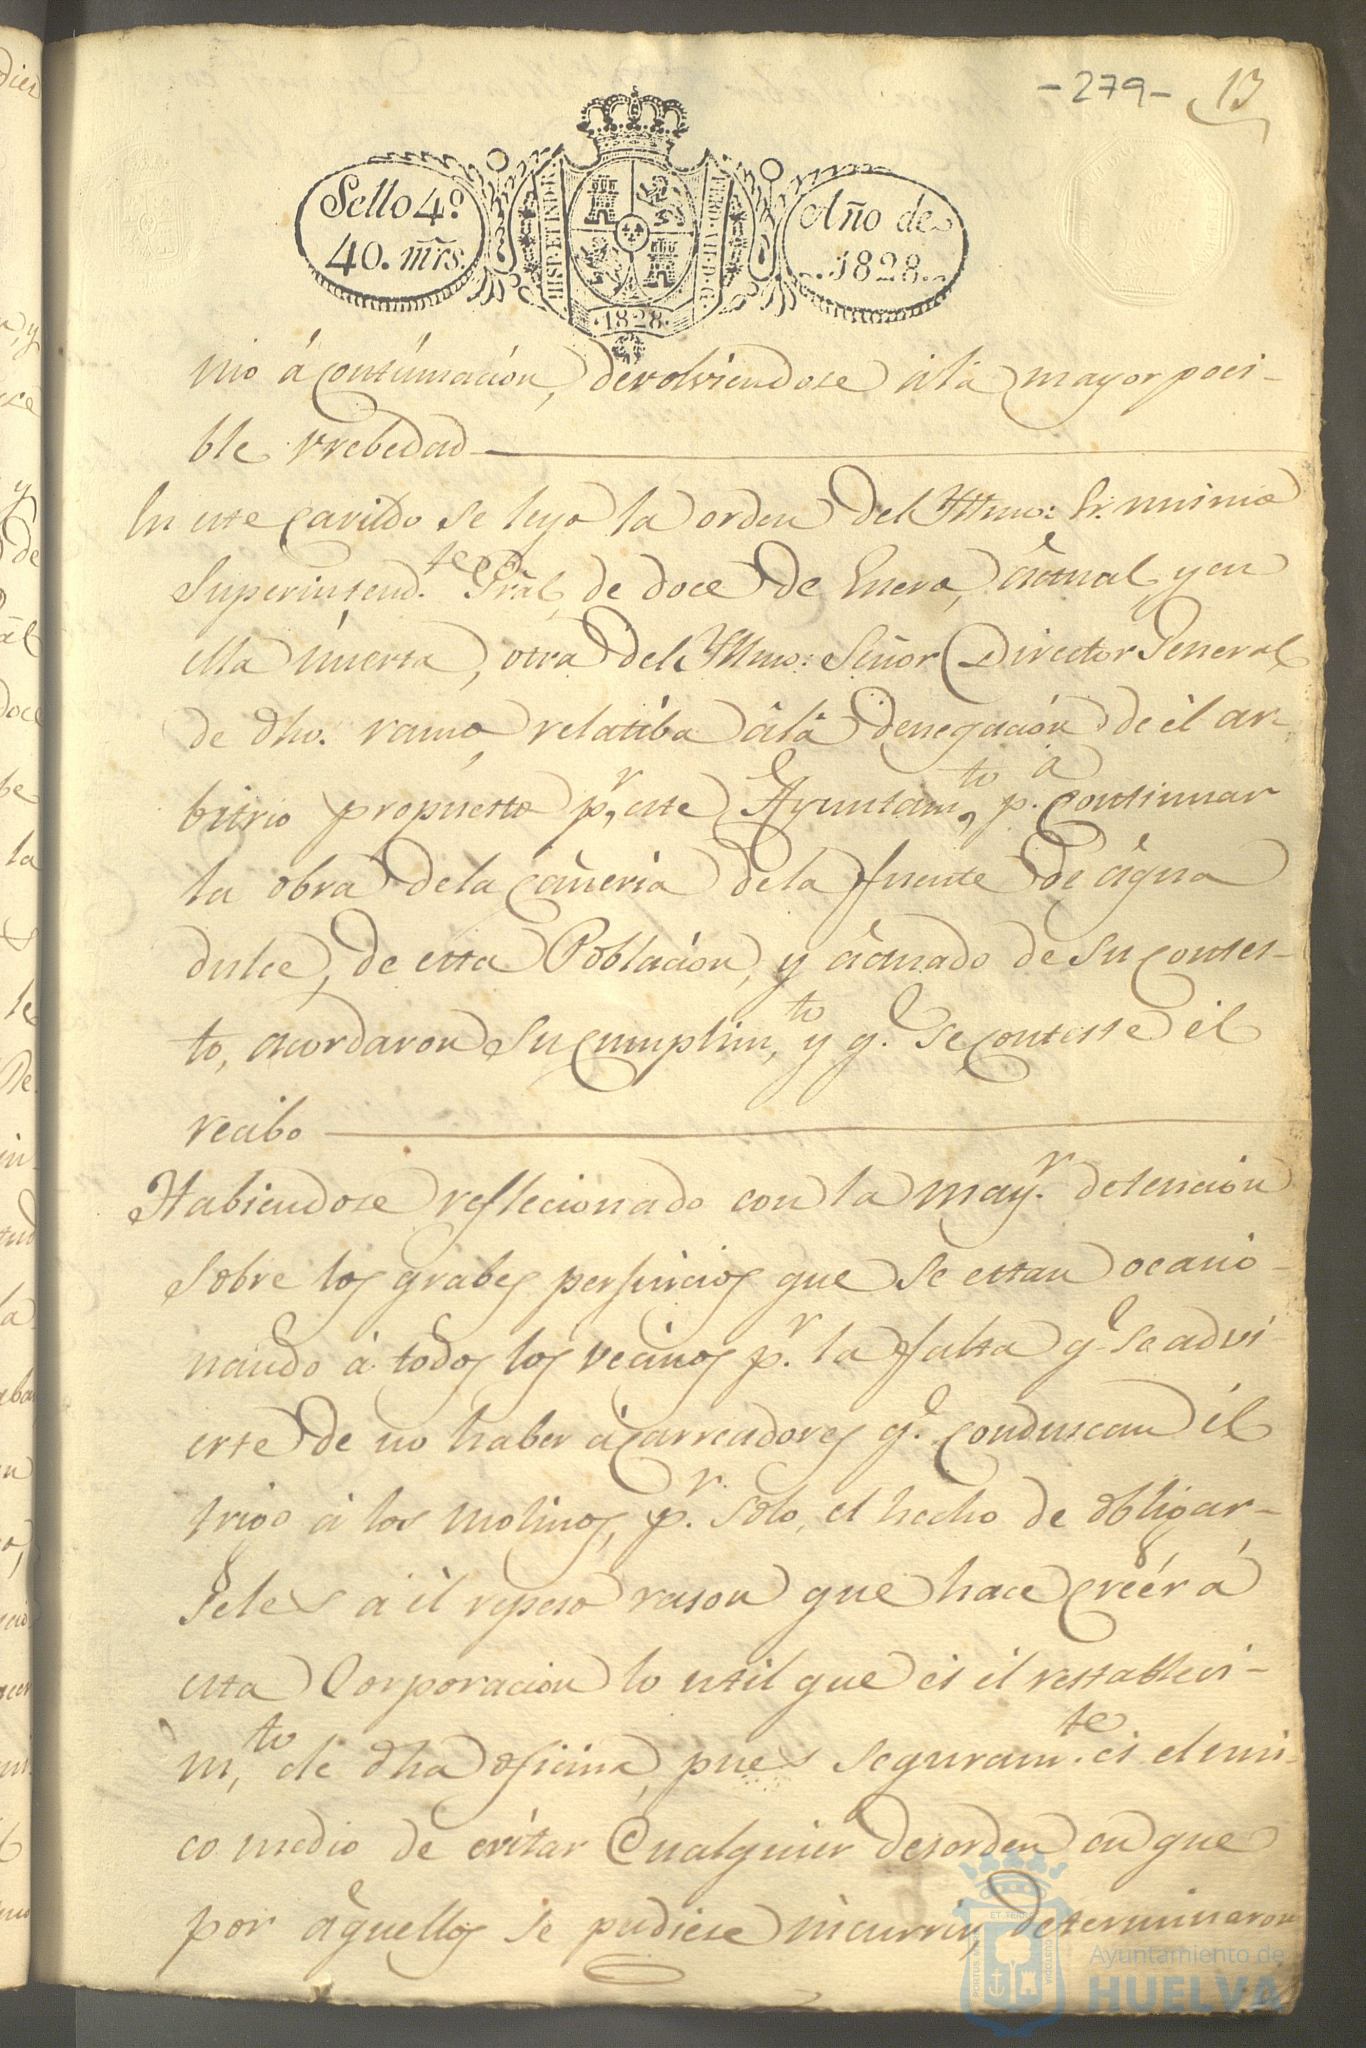 -279- 13
Sello 4º.
40. mrs.
HISP. ET IND. R.
FERD. VII. D. G.
Año de
1828.
.1828.
nio á continuacion, devolviendose a la mayor poci-
ble vrebedad
En este cavildo se leyo la orden del Yllmo: Sr.
Superintend.te Gral, de doce de Enero, actual, y en
ella inserta, otra del Yllmo: Señor Director General
de dho. ramo, relatiba á la denegacion de el ar-
bitrio propuesto pr, este Ayuntam,to p.a continuar
la obra de la cañeria de la fuente de agua
dulce, de esta Poblacion, y actuado de su contes-
to, acordaron su cumplim,to y q.e se conteste el
recibo
Habiendose reflecionado con la may.r detencion
sobre los grabes perjuicios que se estan ocacio-
nando á todos los vecinos p.r la falta q.e se advi-
erte de no haber acarreadores q.e conduscan el
trigo a los molinos, p.r solo, el hecho de obligar-
seles a el repeso rason que hace creér á
esta Corporacion lo util que es el restableci-
m,to de dha oficina, pues seguram.te es el uni-
co medio de evitar Cualquier desorden en que
por aquellos se pudiese incurrir, determinaron
PORTUS MARIS ET TERRE CUSTODIA
Ayuntamiento de
HUELVA